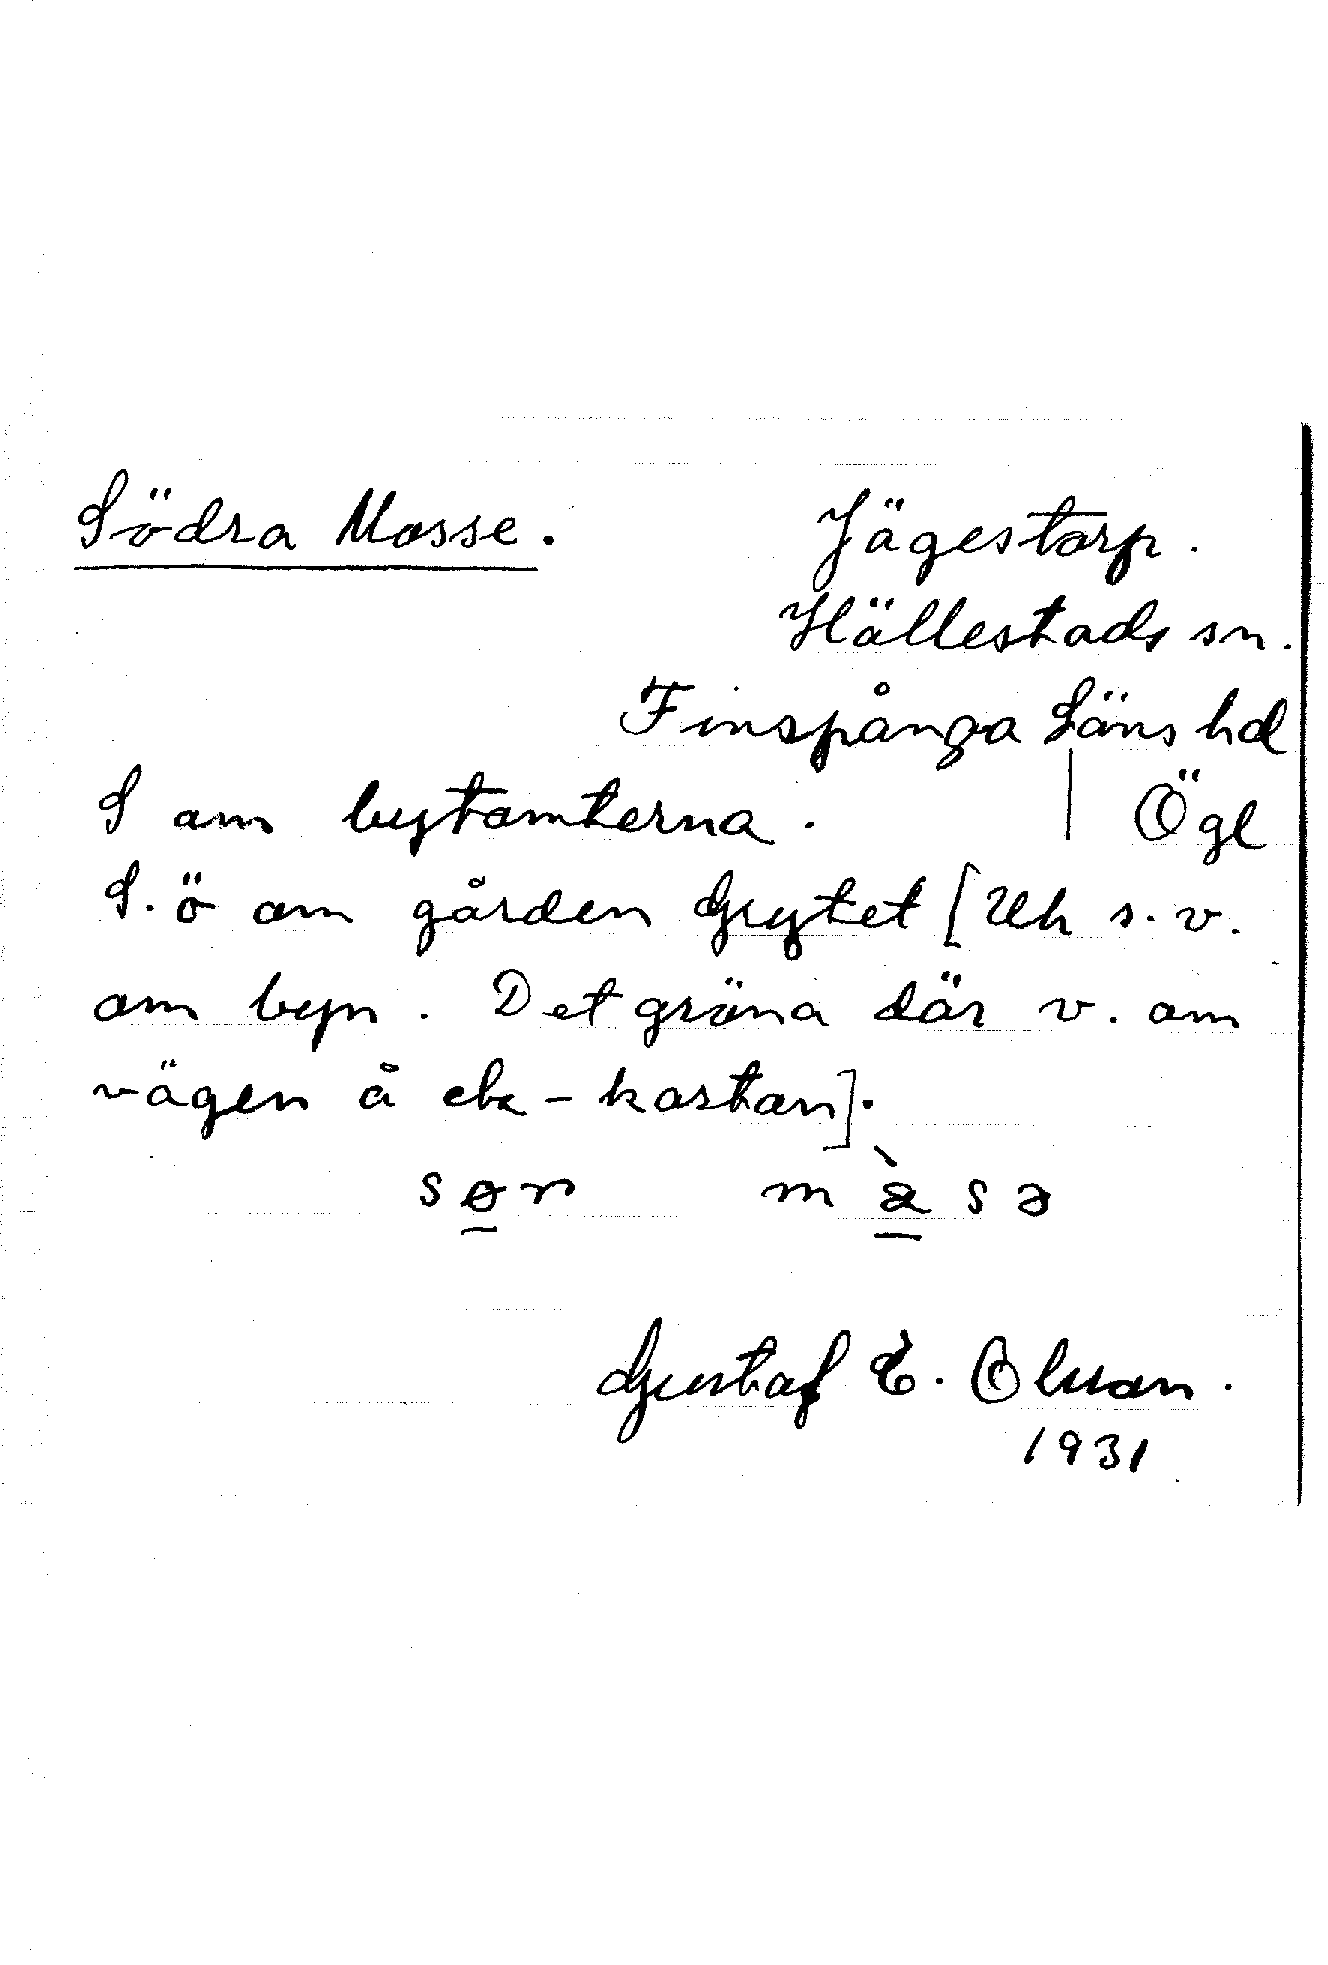 Södra Mosse.
Jägestorp.
Hällestads sn.
Finspånga Läns hd
Ögl
S om bytomterna.
S. ö om gården Grytet [Uh s. v.
om byn. Det gröna där v. om
vägen å ek-kartan].
Gustaf E. Olsson.
1931